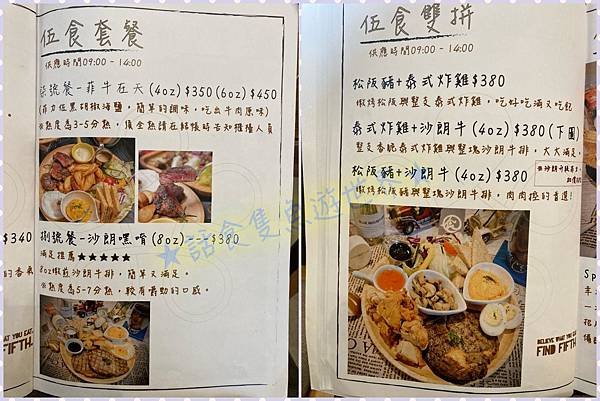 伍食套餐
供應時間09:00-14:00
柒號餐-菲牛在天(4oz)$350(6oz)$450
(菲力佐黑胡椒海鹽，簡單的調味，吃出牛肉原味)
※熟度為3-5分熟，須全熟請在結帳時告知櫃檯人員
捌號餐-沙朗嘿唷(8oz)-$380
滿足推薦★★★★★
8oz嫩煎沙朗牛排，簡單又滿足。
※熟度為5-7分熟，較有嚼勁的口感。
$340
的香氣
WHAT YOU EAT.
FIND FIFTH.
★話食隻魚遊世
伍食雙拼
供應時間09:00-14:00
松阪豬+泰式炸雞$380
嫩烤松阪與整支泰式炸雞，吃好吃滿又吃飽
泰式炸雞+沙朗牛(4oz)$380(下圖)
整支香脆泰式炸雞與整塊沙朗牛排，大大滿足。
松阪豬+沙朗牛(4oz)$380
嫩烤松阪豬與整塊沙朗牛排，肉肉控的首選!
BELIEVE WHAT YOU EAT.
FIND FIFTH.
Sp